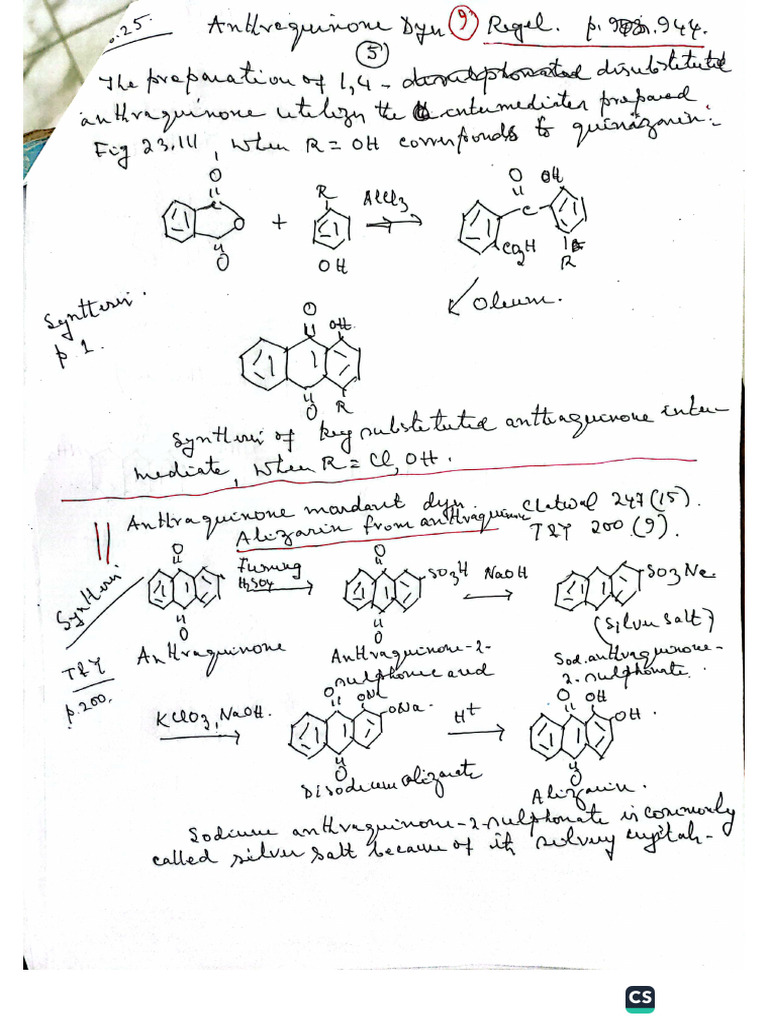 .25. Anthraquinone Dyes 9 Riegel. p. 944.
5
The preparation of 1,4- disubstituted
anthraquinone utilizes the intermediates prepared
Fig 23.111, when R = OH corresponds to quinizarin.
O
R
AlCl3
O OH
C
O
+
CO2H
O
OH
R
Oleum.
Synthesis.
p 1.
O
OH
O
R
Synthesis of key substituted anthraquinone inter-
mediate, when R = Cl, OH.
Anthraquinone mordant dyes Chatwal 247(15).
Alizarin from anthraquinone T&Y 200(9).
Synthesis
T&Y
p.200.
O
O
Fuming
H2SO4
O
O
SO3H
NaOH
SO3Na
(Silver salt)
Anthraquinone
Anthraquinone-2-
sulphonic acid
Sod. anthraquinone-
2-sulphonate.
KClO3, NaOH.
O ONa
ONa
O
H+
O OH
OH.
O
Disodium alizarate
Alizarin.
Sodium anthraquinone-2-sulphonate is commonly
called silver salt because of its silvery crystals-
CS